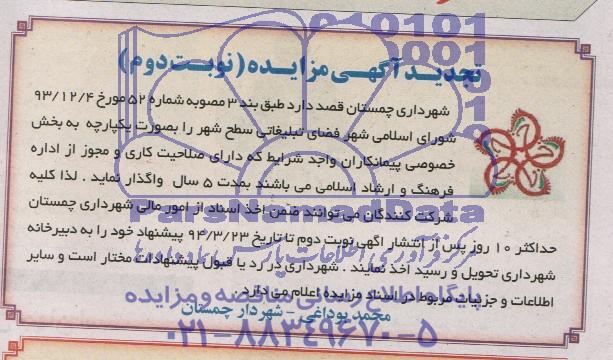 تجدید آگهی مزایده (نوبت دوم)
شهرداری چمستان قصد دارد طبق بند ۳ مصوبه شماره ۵۲ مورخ ۹۳/۱۲/۴
شورای اسلامی شهر فضای تبلیغاتی سطح شهر را بصورت یکپارچه به بخش
خصوصی پیمانکاران واجد شرایط که دارای صلاحیت کاری و مجوز از اداره
فرهنگ و ارشاد اسلامی می باشند بمدت ۵ سال واگذار نماید . لذا کلیه
شرکت کنندگان می توانند ضمن اخذ اسناد از امور مالی شهرداری چمستان
حداکثر ۱۰ روز پس از انتشار آگهی نوبت دوم تا تاریخ ۹۴/۳/۲۳ پیشنهاد خود را به دبیرخانه
شهرداری تحویل و رسید اخذ نمایند . شهرداری در رد یا قبول پیشنهادات مختار است و سایر
اطلاعات و جزئیات مربوط در اسناد مزایده اعلام می دارد.
محمد یوداغی - شهردار چمستان
ParsNamadData
مرکز فرآوری اطلاعات پارس نماد داده ها
پایگاه اطلاع رسانی مناقصه و مزایده
۰۲۱-۸۸۳۴۹۶۷۰-۵